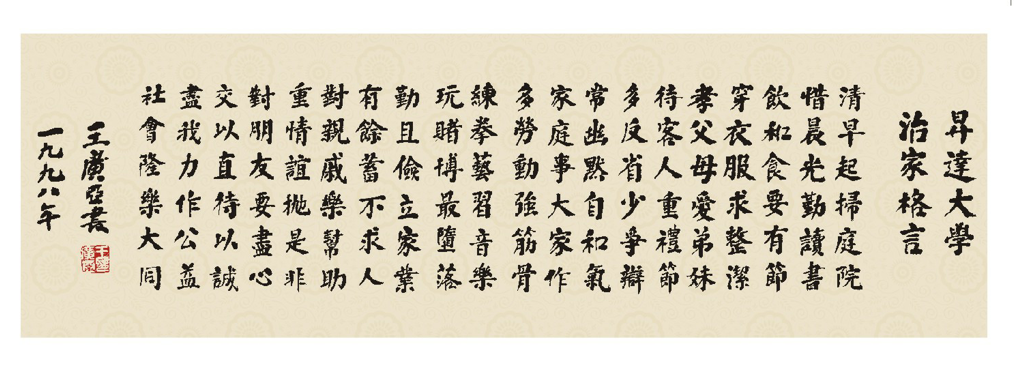 昇達大學
治家格言
清早起掃庭院
惜晨光勤讀書
飲和食要有節
穿衣服求整潔
孝父母愛弟妹
待客人重禮節
多反省少爭辯
常幽默自和氣
家庭事大家作
多勞動強筋骨
練拳藝習音樂
玩賭博最墮落
勤且儉立家業
有餘蓄不求人
對親戚樂幫助
重情誼拋是非
對朋友要盡心
交以直待以誠
盡我力作公益
社會隆樂大同
王廣亞書
一九九八年